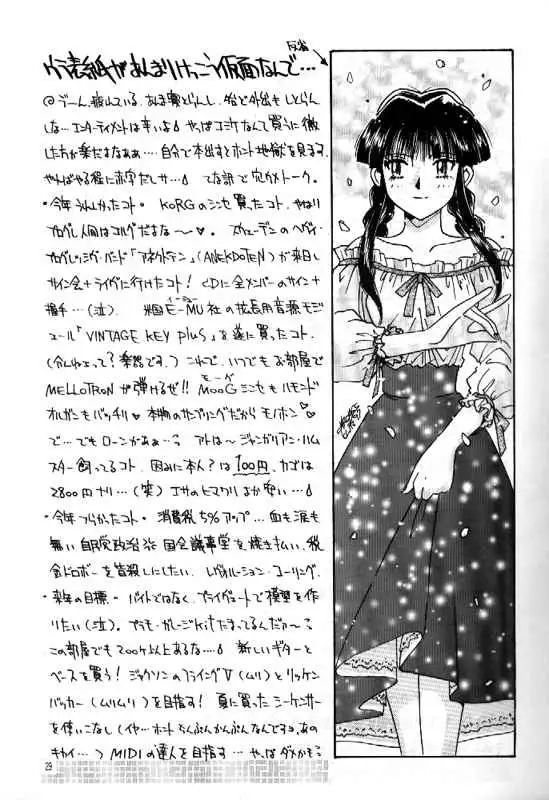 ウラ表紙があんまりけっこう仮面なんで…
反省
@ う〜ん、疲れている。あまり寝とらんし、殆ど外出もしとらん
しな…エンターテイメントは辛いよ♪ やっぱコミケなんて買うに徹
した方が楽だよなぁぁ….自分で本出すとホント地獄を見ます。
やればやる程に赤字だしサ…♪ てな訳で穴うめトーク。
・今年うれしかったコト・ KORGのシンセ買ったコト.やはり
プログレ人間はコルグだよな〜♡。 スウェーデンのヘヴィ・
プログレッシヴ・バンド「アネクドテン」(ANEKDOTEN)が来日し
サイン会+ライヴに行けたコト! CDに全メンバーのサイン+
握手…(泣). 米国E-MU社の拡張用音源モジ
イーミュー
ュール「VINTAGE KEY plus」を遂に買ったコト.
(分んねぇって?楽器です.)これで、いつでもお部屋で
MELLOTRONが弾けるぜ!! MOOGシンセもハモンド
モーグ
オルガンもバッチリ♡本物のサンプリングだからモノホン♡
で…でもローンがぁぁ…。 アトは〜ジャンガリアン・ハム
スター飼ってるコト. 因みに本人?は100円.カゴは
2800円ナリ…(笑) エサのヒマワリより安い…♪
・今年つらかったコト・ 消費税5%アップ…血も涙も
無い自民党政治 国会議事堂を焼き払い、税
金ドロボーを皆殺しにしたい.レヴォルーション・コーリング.
・来年の目標・ バイトではなく、プライヴェートで模型を作
りたい(泣). プラモ・ガレージkitたまってるんだァ〜
この部屋でも200ケ以上あるな…♪ 新しいギターと
ベースを買う! ジャクソンのフライングV(ムリ)とリッケン
バッカー(ムリムリ)を目指す! 夏に買ったシーケンサー
を使いこなし(イヤ…ホントちんぷんかんぷんなんですョ、あの
キカイ…) MIDIの達人を目指す…やっぱダメかも
29